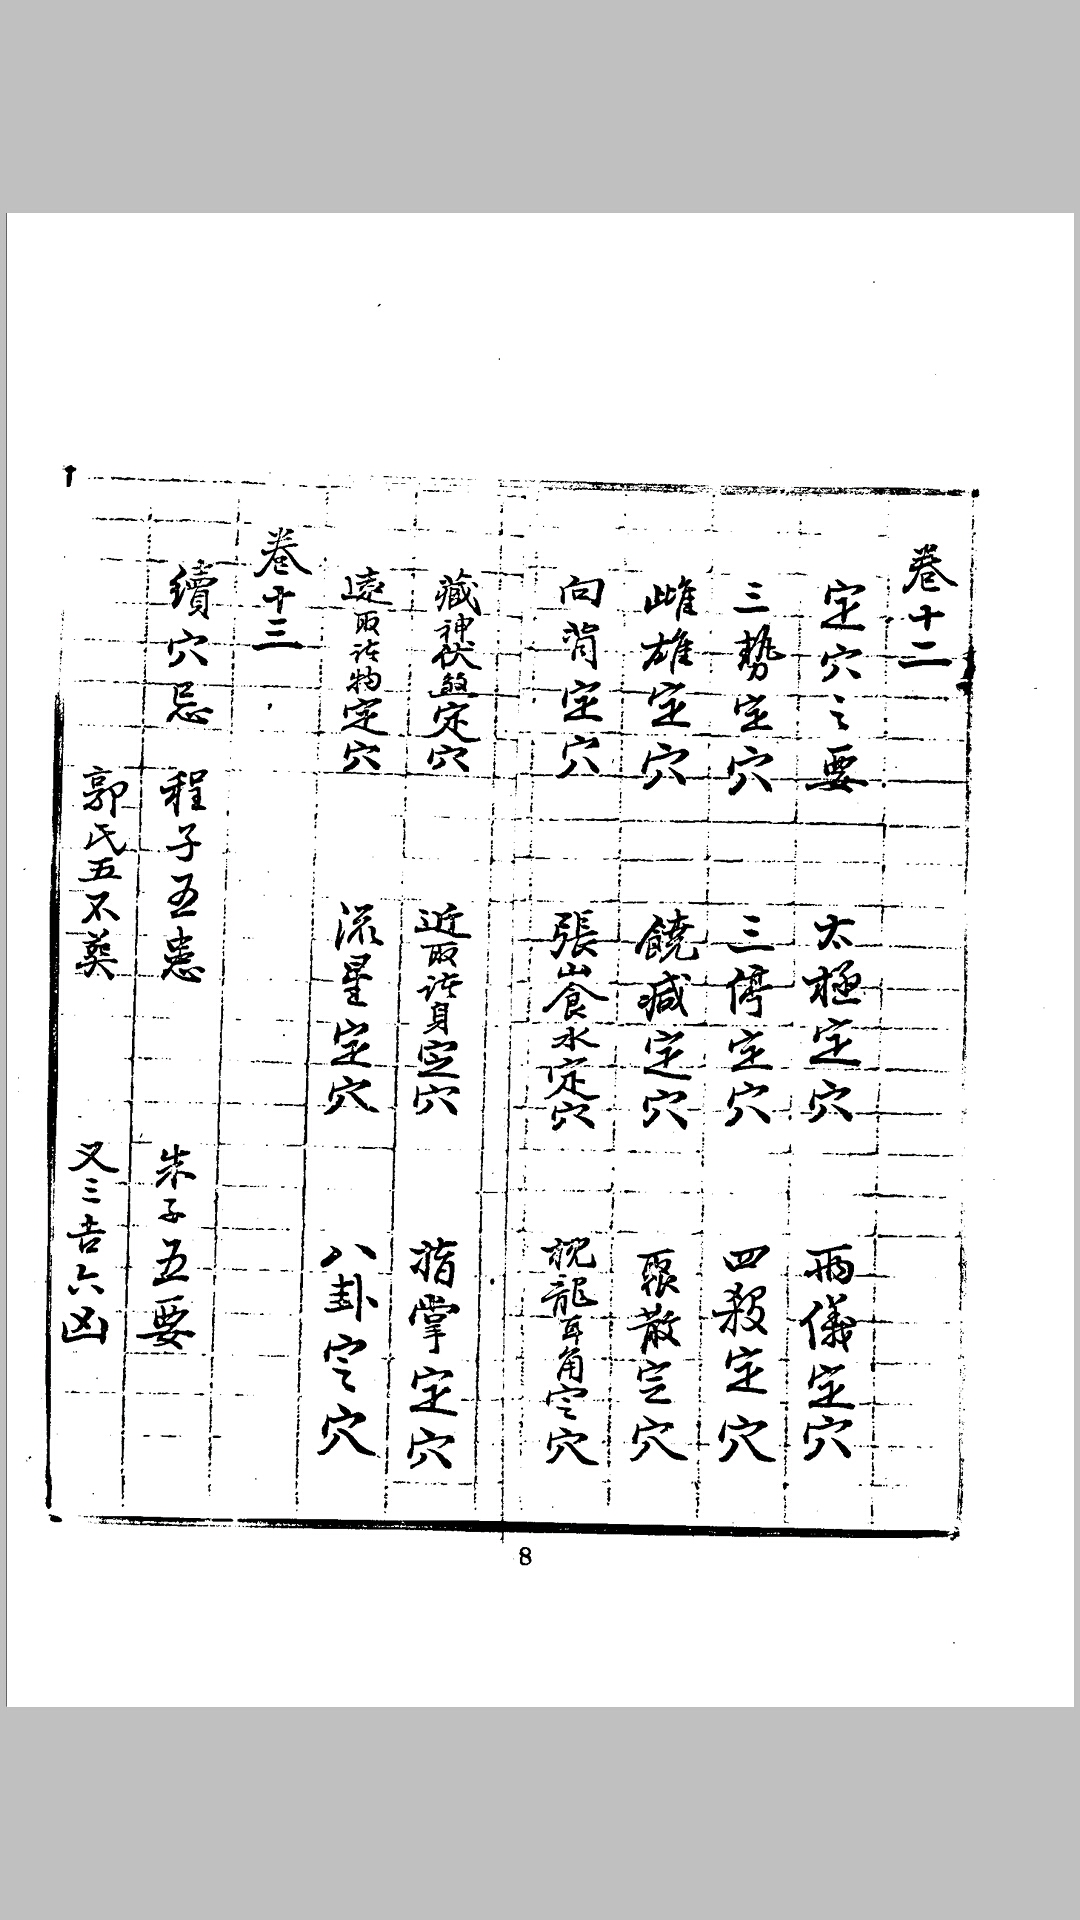 卷十二
定穴之要　太極定穴　兩儀定穴
三勢定穴　三停定穴　四殺定穴
雌雄定穴　饒減定穴　聚散定穴
向背定穴　張山食水定穴　枕龍耳角定穴
藏神伏煞定穴　近取諸身定穴　指掌定穴
遠取諸物定穴　流星定穴　八卦定穴
卷十三
續穴忌　程子五患　朱子五要
郭氏五不葬　又三吉六凶
8